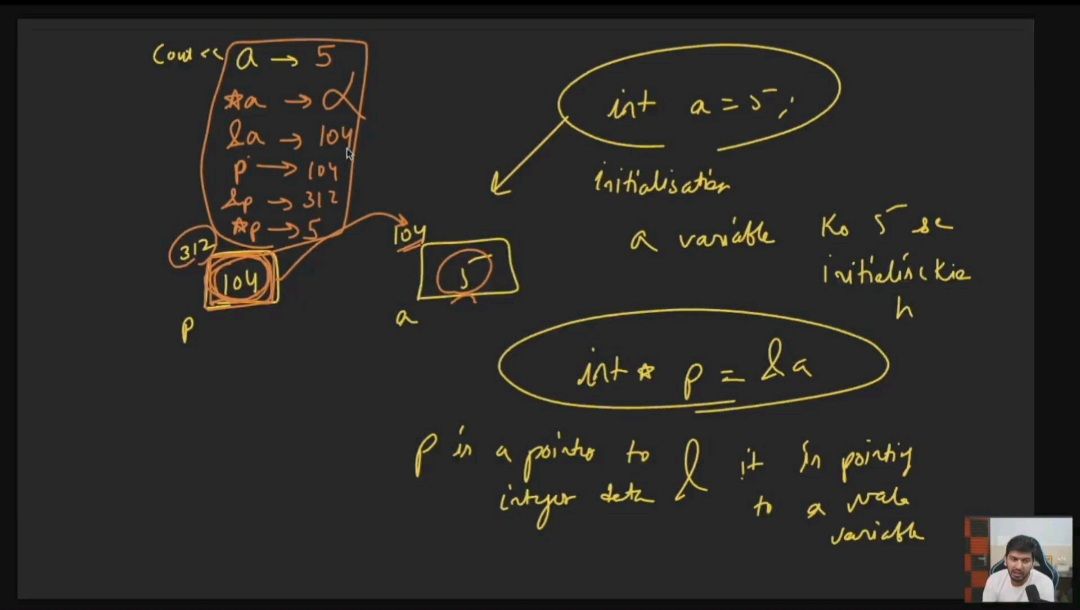 Cout << a → 5
*a → α
&a → 104
p → 104
&p → 312
*p → 5
312
104
p
104
5
a
int a = 5;
initialisation
a variable ko 5 se
initialise kia
h
int * p = &a
p is a pointer to
integer data
& it is pointing
to a wala
variable